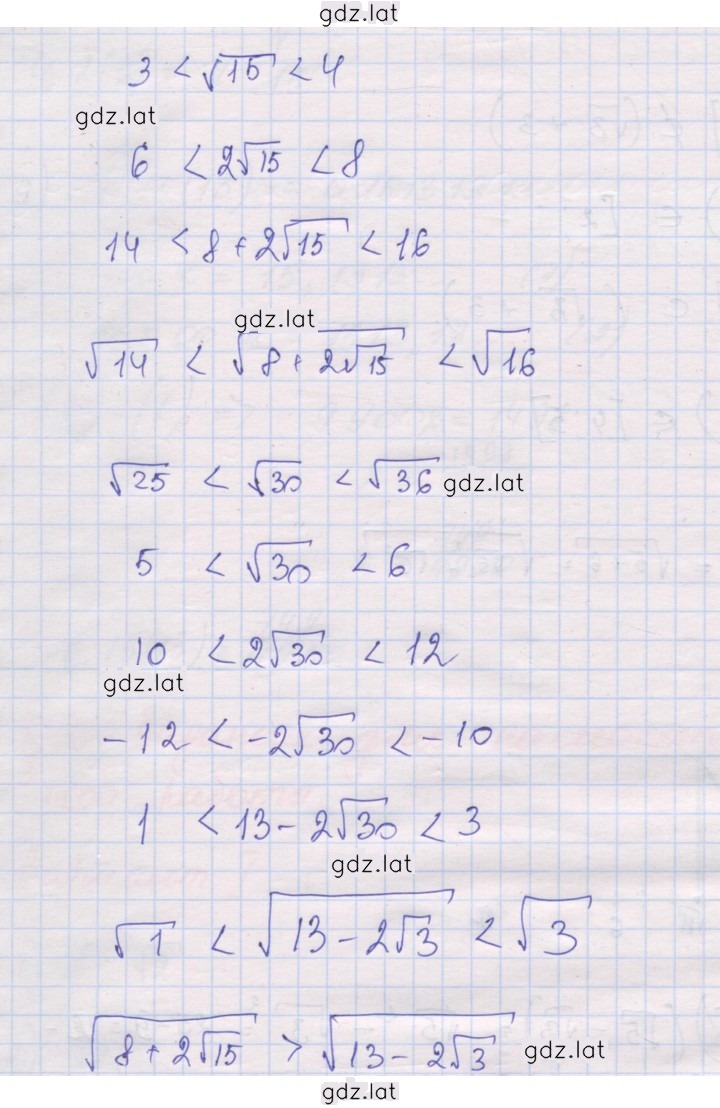 gdz.lat
3 < √15 < 4
gdz.lat
6 < 2√15 < 8
14 < 8 + 2√15 < 16
gdz.lat
√14 < √(8 + 2√15) < √16
√25 < √30 < √36 gdz.lat
5 < √30 < 6
10 < 2√30 < 12
gdz.lat
-12 < -2√30 < -10
1 < 13 - 2√30 < 3
gdz.lat
√1 < √(13 - 2√3) < √3
√(8 + 2√15) > √(13 - 2√3) gdz.lat
gdz.lat